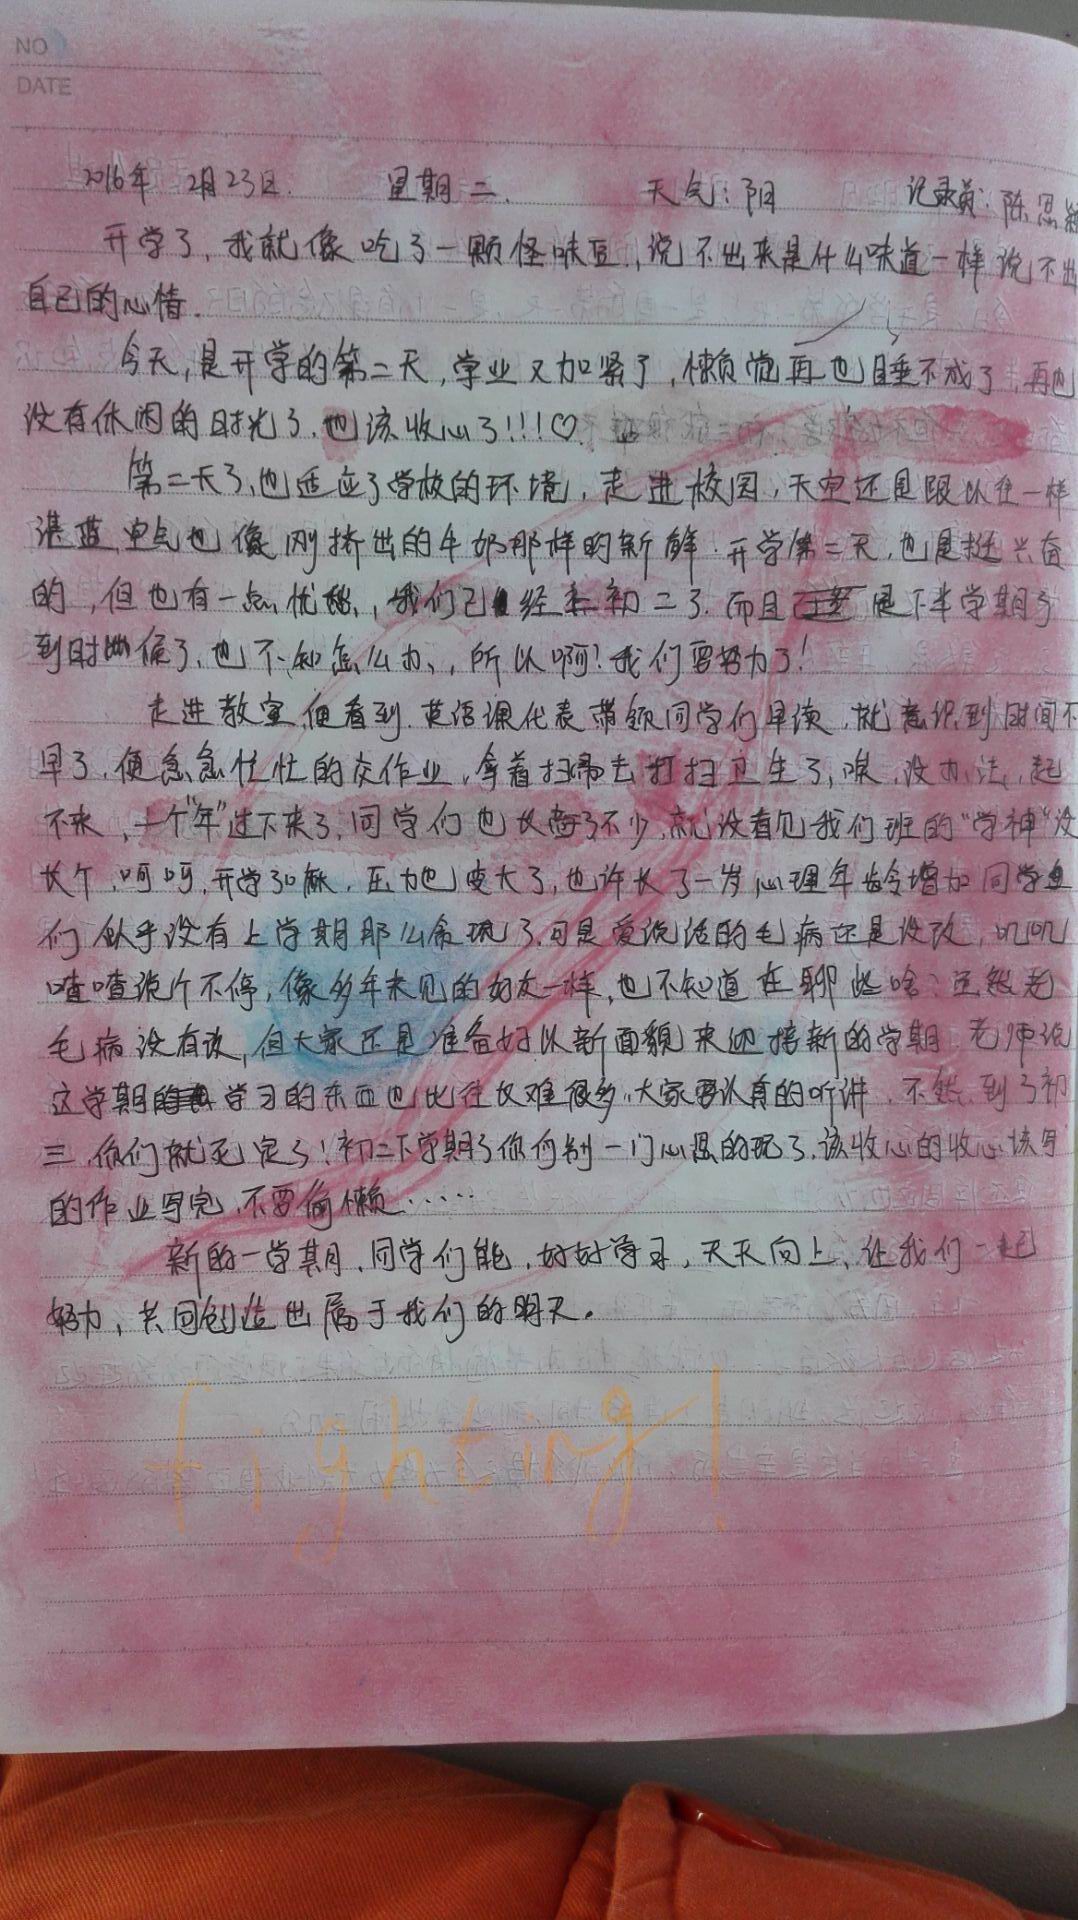 NO
DATE
2016年 2月23日. 星期二. 天气:阴 记录员:陈思
开学了,我就像吃了一颗怪味豆,说不出来是什么味道一样说不出
自己的心情.
今天,是开学的第二天,学业又加紧了,懒觉再也睡不成了,再也
没有休闲的时光了.也该收心了!!!♡
第二天了,也适应了学校的环境,走进校园,天空还是跟以往一样
湛蓝,也像刚挤出的牛奶那样的新鲜.开学第二天,也是挺兴奋
的,但也有一点忧愁,我们已经初二了.而且是下半学期了
到时候了,也不知怎么办,所以啊!我们要努力了!
走进教室,便看到.英语课代表带领同学们早读,就意识到时间不
早了,便急急忙忙的交作业,拿着扫帚去打扫卫生了,唉,没办法,起
不来,一个"年"过下来了,同学们也长高了不少,就没看见我们班的"学神"没
长个,呵呵,开学了嘛,压力也变大了,也许长了一岁心理年龄增加同学
们似乎没有上学期那么贪玩了.可是爱说话的毛病还是没改,叽叽
喳喳说个不停,像多年未见的好友一样,也不知道在聊些啥?虽然老
毛病没有改,但大家还是准备好以新面貌来迎接新的学期.老师说
这学期学习的东西也比往仅难很多,大家要认真的听讲,不然,到了初
三,你们就死定了!初二下学期了你们别一门心思的玩了,该收心的收心该写
的作业写完,不要偷懒......
新的一学期,同学们能,好好学习,天天向上,让我们一起
努力,共同创造出属于我们的明天。
fighting!